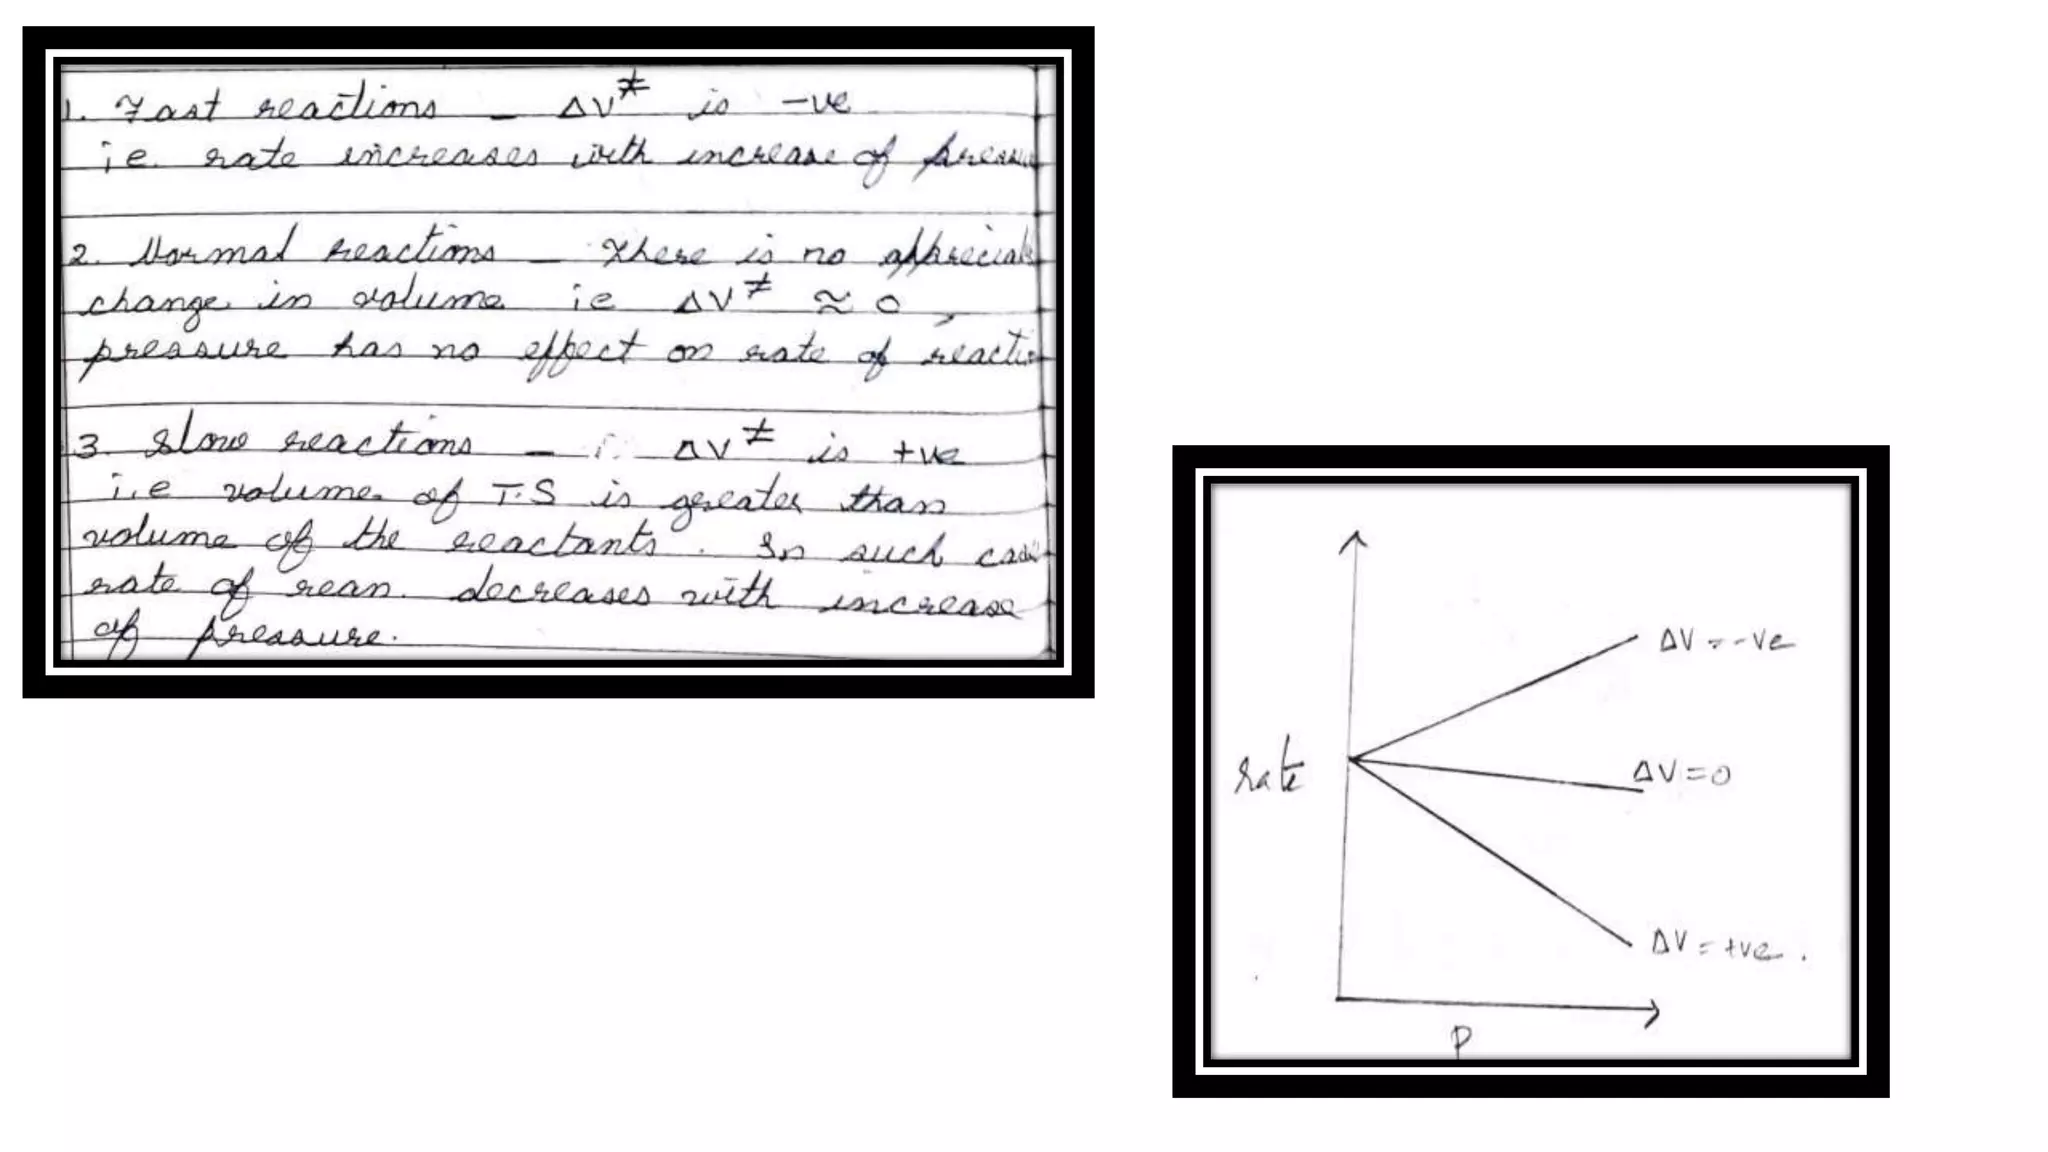 1. Fast reactions – ΔV≠ is -ve
ie. rate increases with increase of
2. Normal reactions – There is no
change in volume ie ΔV≠ ≈ 0,
pressure has no effect on rate of
3. Slow reactions – ΔV≠ is +ve
i.e volume of T.S is greater than
volume of the reactants. In such
rate of rean. decreases with increase
of pressure.
ΔV = -ve
rate
ΔV = 0
ΔV = +ve.
P